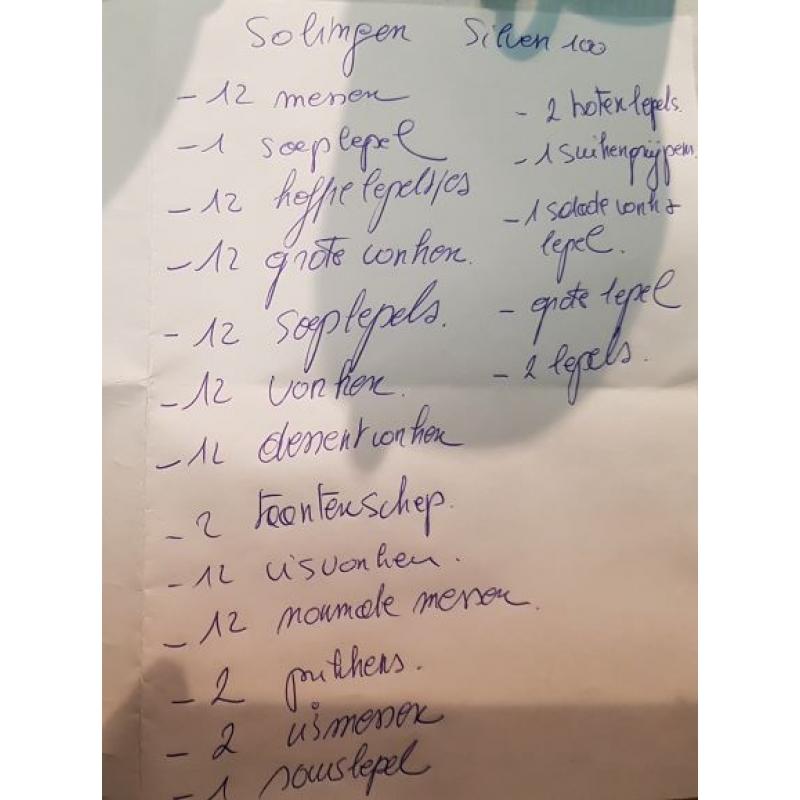 Solingen Silver 100
- 12 messen
- 1 soeplepel
- 12 koffielepeltjes
- 12 grote vorken.
- 12 soeplepels.
- 12 vorken.
- 12 dessertvorken
- 2 taartenschep.
- 12 visvorken.
- 12 normale messen.
- 2 prikkers.
- 2 vismessen
- 1 sauslepel
- 2 botenlepels.
- 1 suikergrijpen
- 1 salade vork +
lepel.
- grote lepel
- 2 lepels.